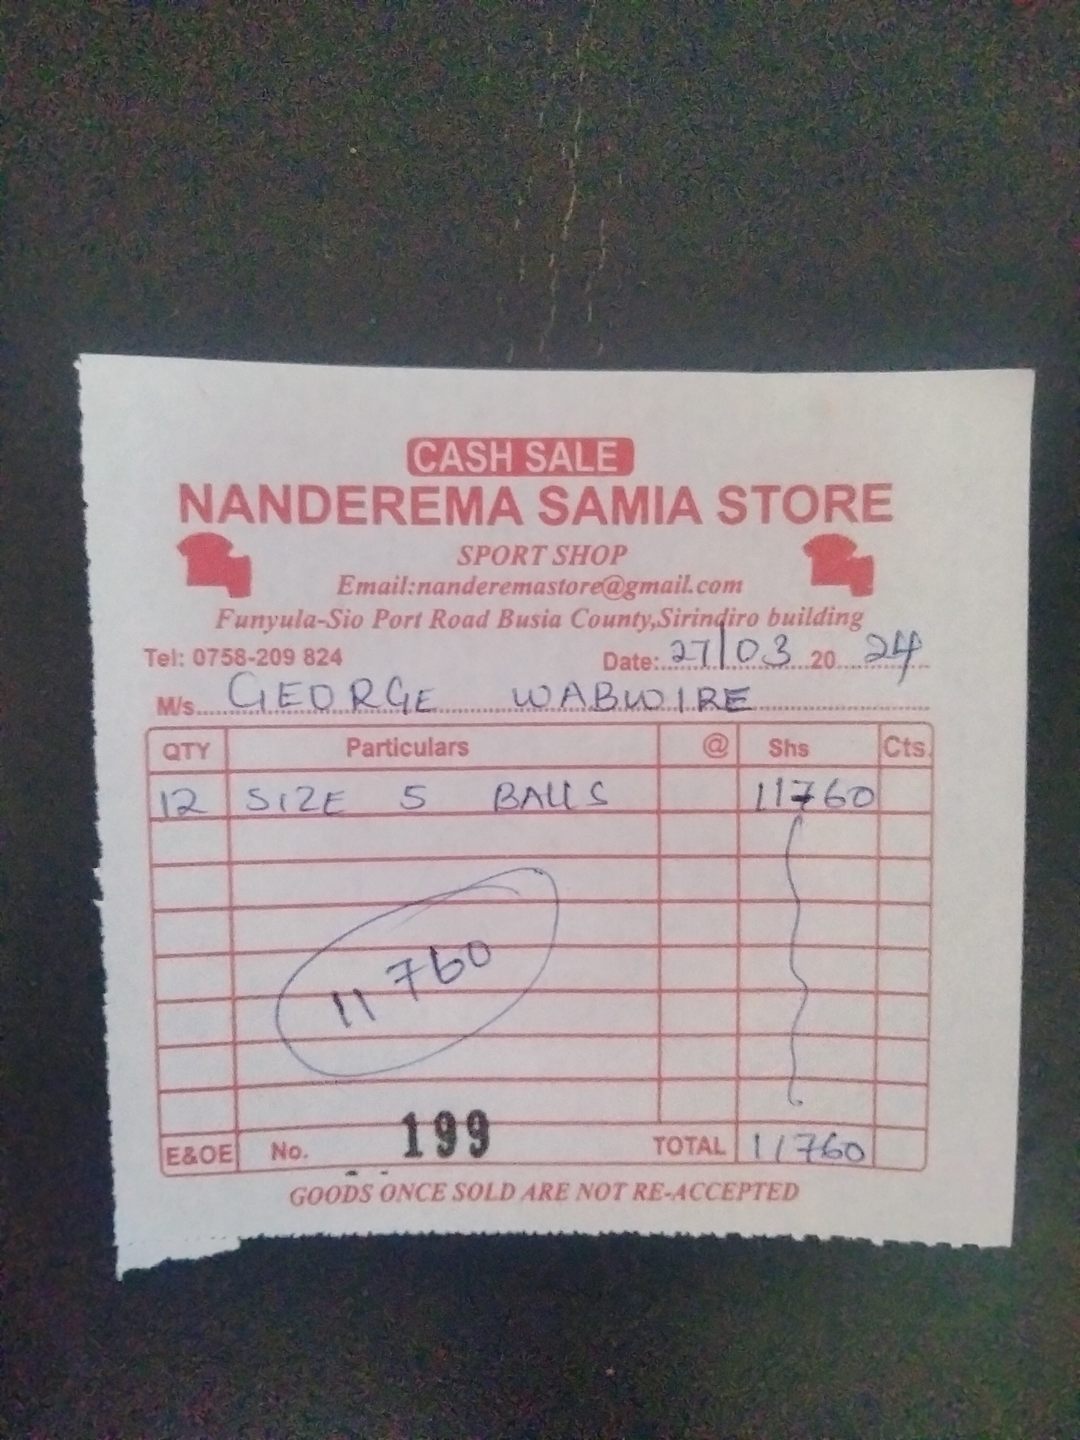 CASH SALE
NANDEREMA SAMIA STORE
SPORT SHOP
Email:nanderemastore@gmail.com
Funyula-Sio Port Road Busia County,Sirindiro building
Tel: 0758-209 824 Date: 27/03 20 24
M/s. GEORGE WABWIRE
QTY Particulars @ Shs Cts.
12 SIZE 5 BALLS 11760
11760
E&OE No. 199 TOTAL 11760
GOODS ONCE SOLD ARE NOT RE-ACCEPTED